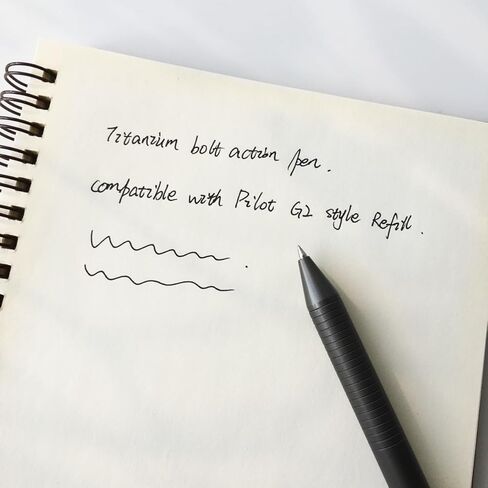 Titanium bolt action pen.
compatible with Pilot G2 style Refill.